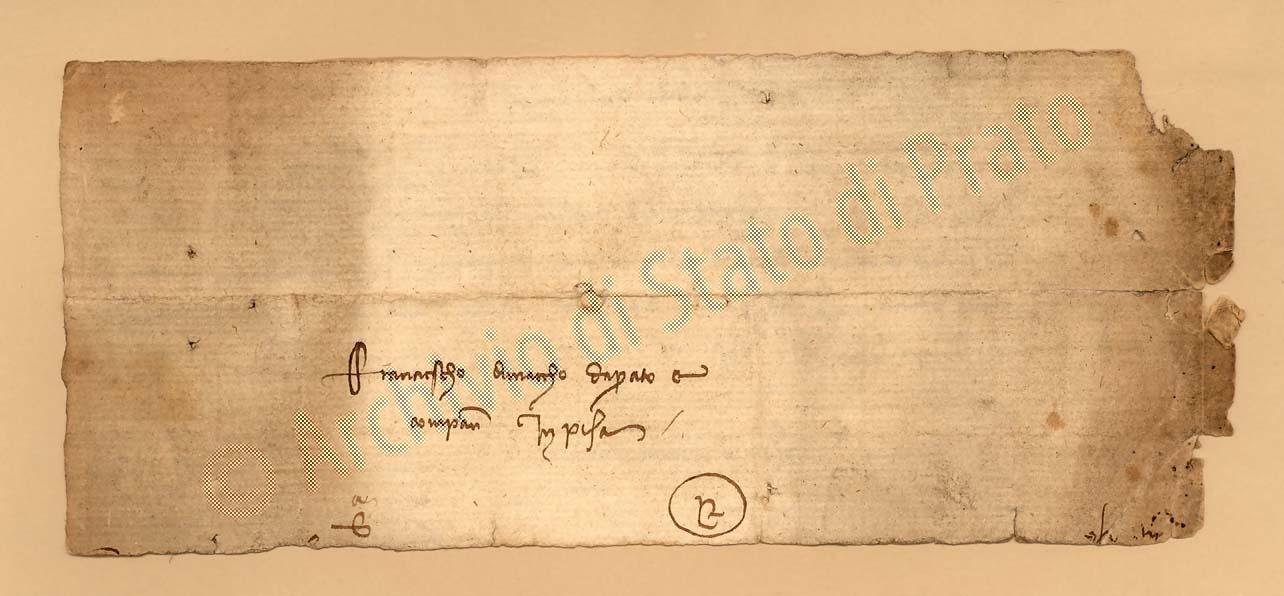 Franciescho di Marcho da Prato e
compangni in Pisa
© Archivio di Stato di Prato